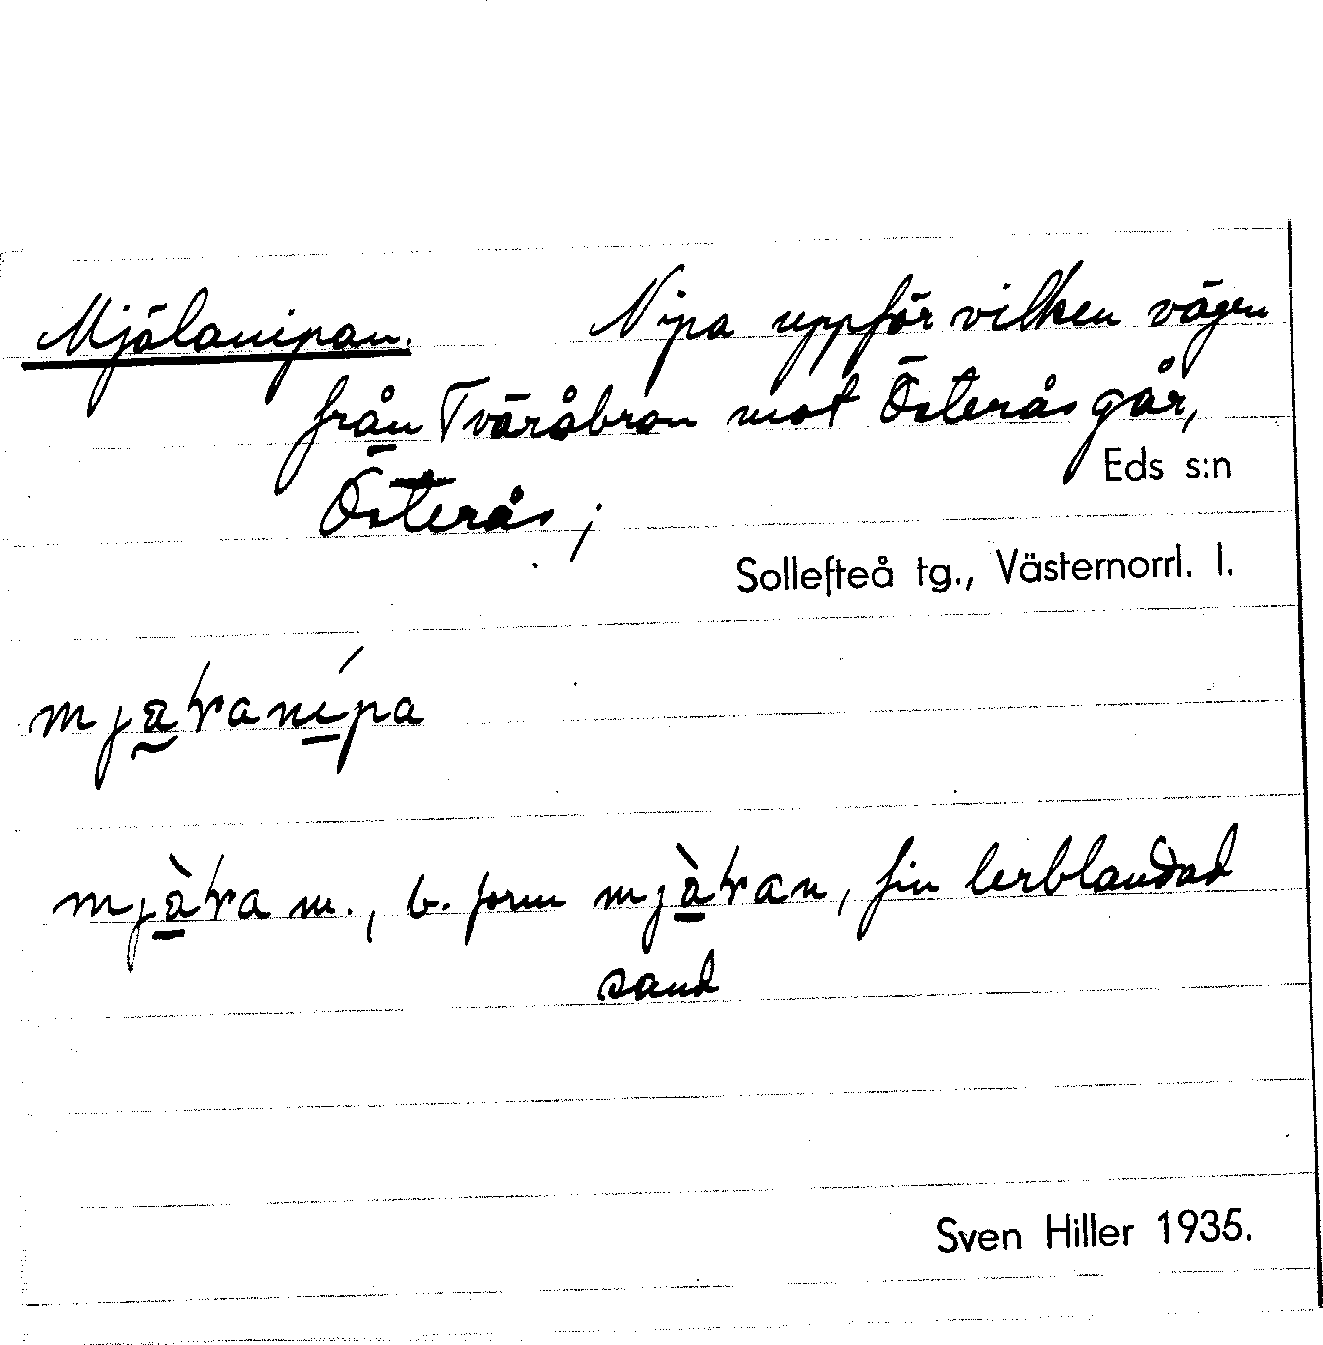 Mjälanipan. Nipa uppför vilken vägen
från Tväråbron mot Österås går,
Eds s:n
Österås;
Sollefteå tg., Västernorrl. l.
m., b. form fin lerblandad
sand
Sven Hiller 1935.